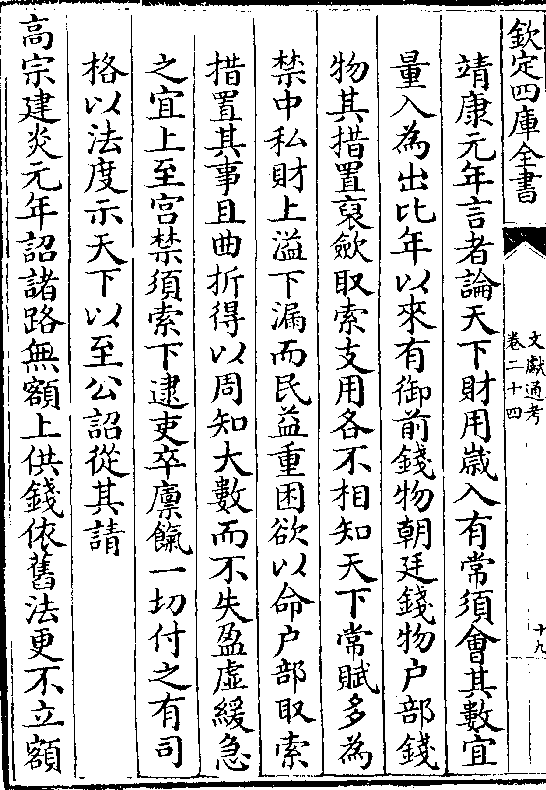 欽定四庫全書
文獻通考
卷二十四
十九
靖康元年言者論天下財用歲入有常須會其數宜
量入為出比年以來有御前錢物朝廷錢物户部錢
物其措置裒歛取索支用各不相知天下常賦多為
禁中私財上溢下漏而民益重困欲以命户部取索
措置其事且曲折得以周知大數而不失盈虛緩急
之宜上至宫禁須索下逮吏卒廪餼一切付之有司
格以法度示天下以至公詔從其請
高宗建炎元年詔諸路無額上供錢依舊法更不立額